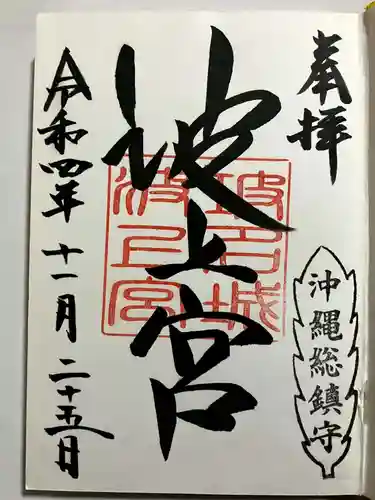 奉拝
沖縄総鎮守
波上宮
琉球城
波上宮
令和四年十一月二十五日